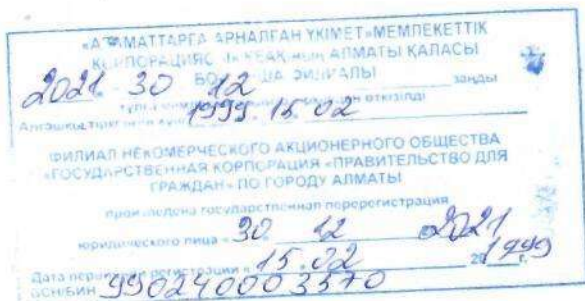 «АЗАМАТТАРҒА АРНАЛҒАН ҮКІМЕТ» МЕМЛЕКЕТТІК
КОРПОРАЦИЯСЫ КЕАҚ-ның АЛМАТЫ ҚАЛАСЫ
БОЙЫНША ФИЛИАЛЫ
2021 30 12 заңды
тұлға өткізілді
Алғашқы тіркелген күні 1999. 15. 02
ФИЛИАЛ НЕКОМЕРЧЕСКОГО АКЦИОНЕРНОГО ОБЩЕСТВА
«ГОСУДАРСТВЕННАЯ КОРПОРАЦИЯ «ПРАВИТЕЛЬСТВО ДЛЯ
ГРАЖДАН» ПО ГОРОДУ АЛМАТЫ
произведена государственная перерегистрация
юридического лица «30 12 2021
Дата первичной регистрации «15.02 20 1999 г.
БСН/БИН 990240003570